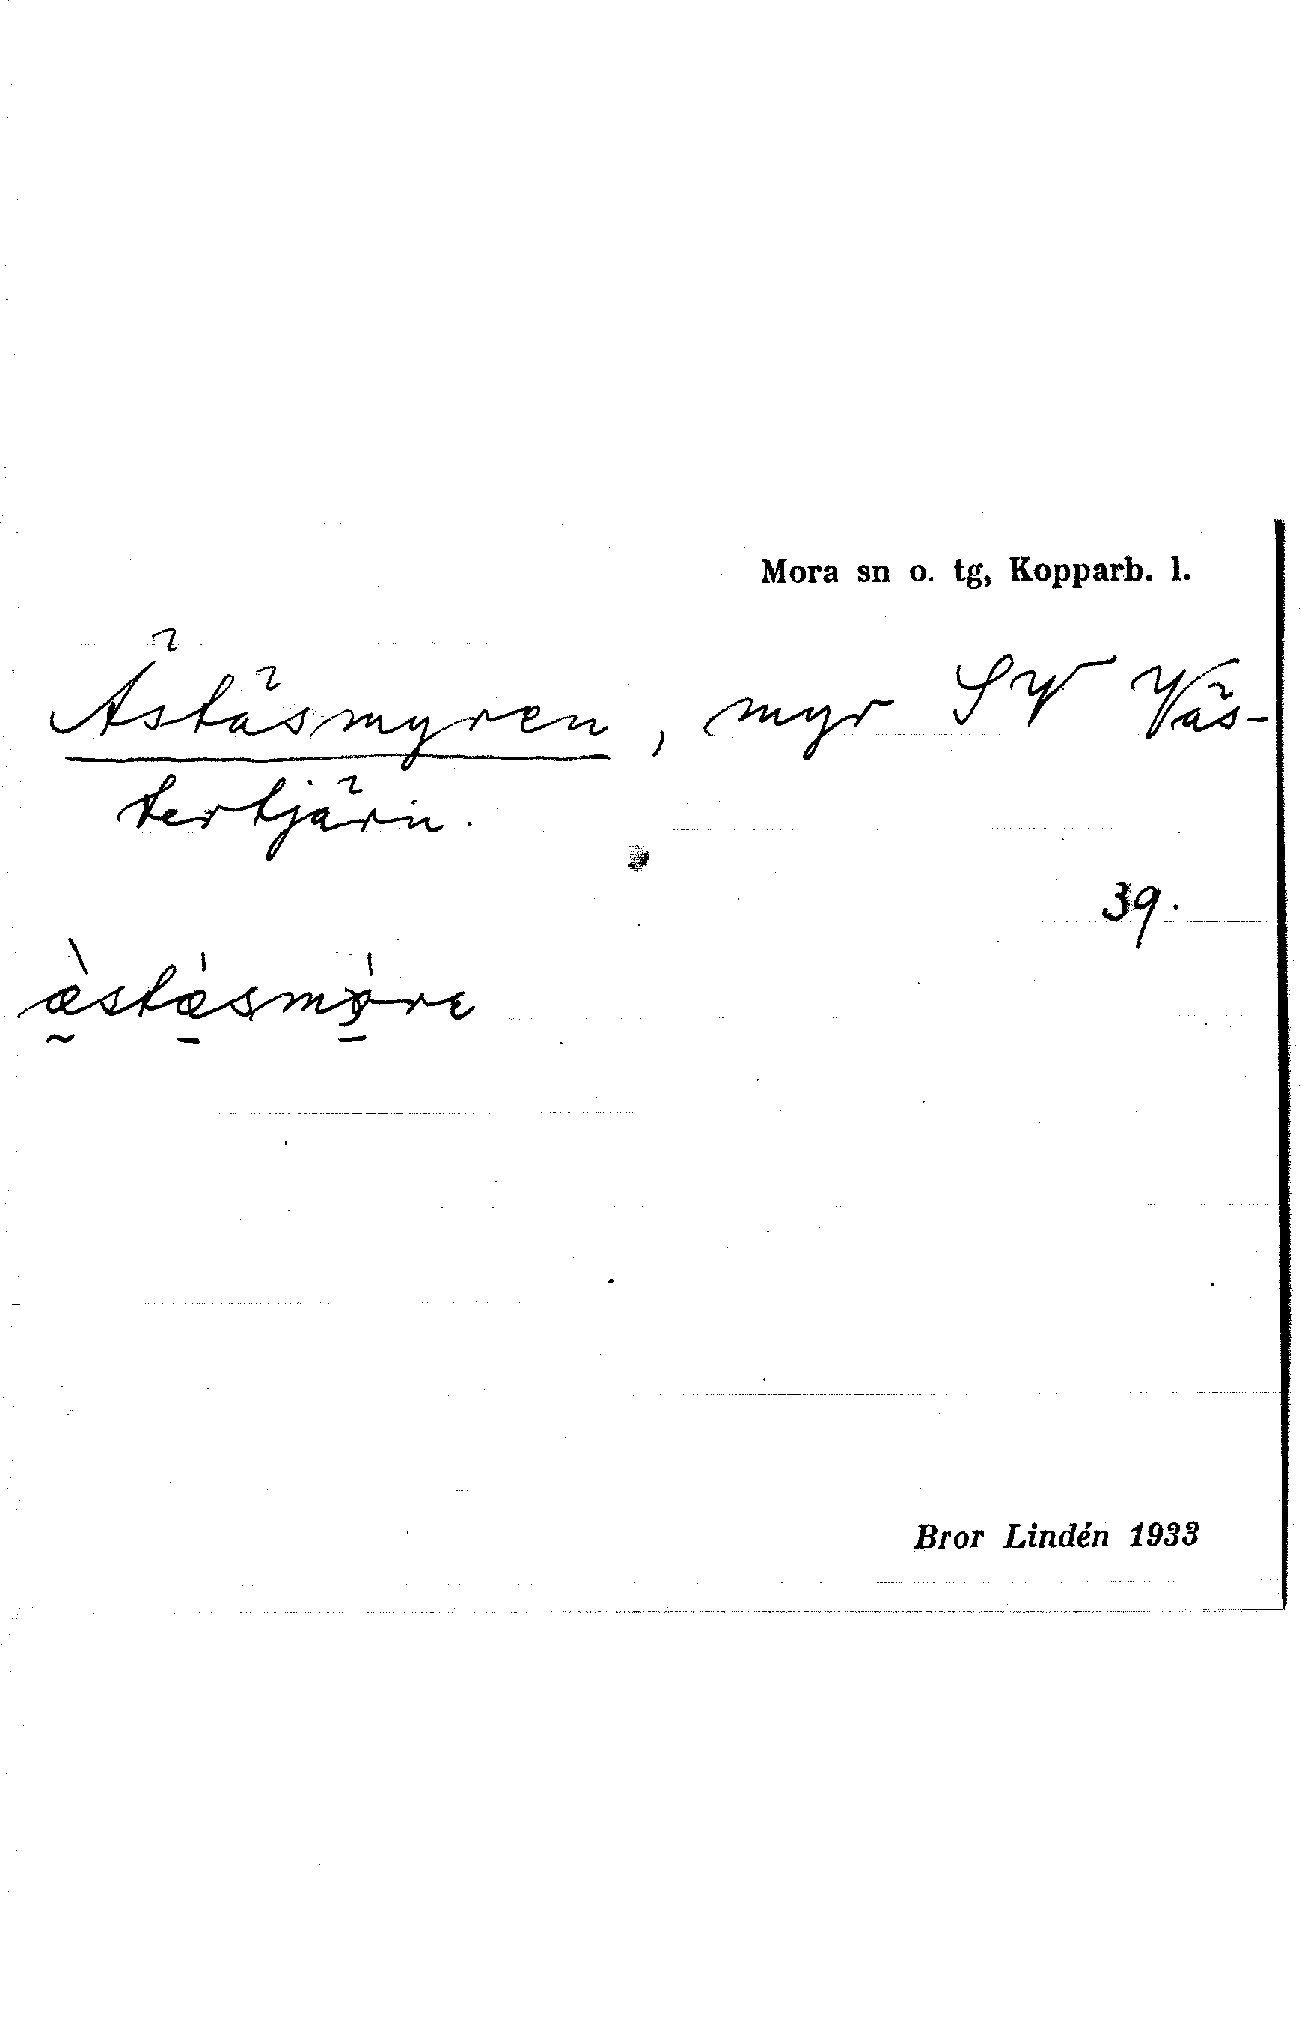 Mora sn o. tg, Kopparb. l.
Ästäsmyren, myr SV Väs-
tertjärn.
39.
æ̀stæ̀smỳre
Bror Lindén 1933